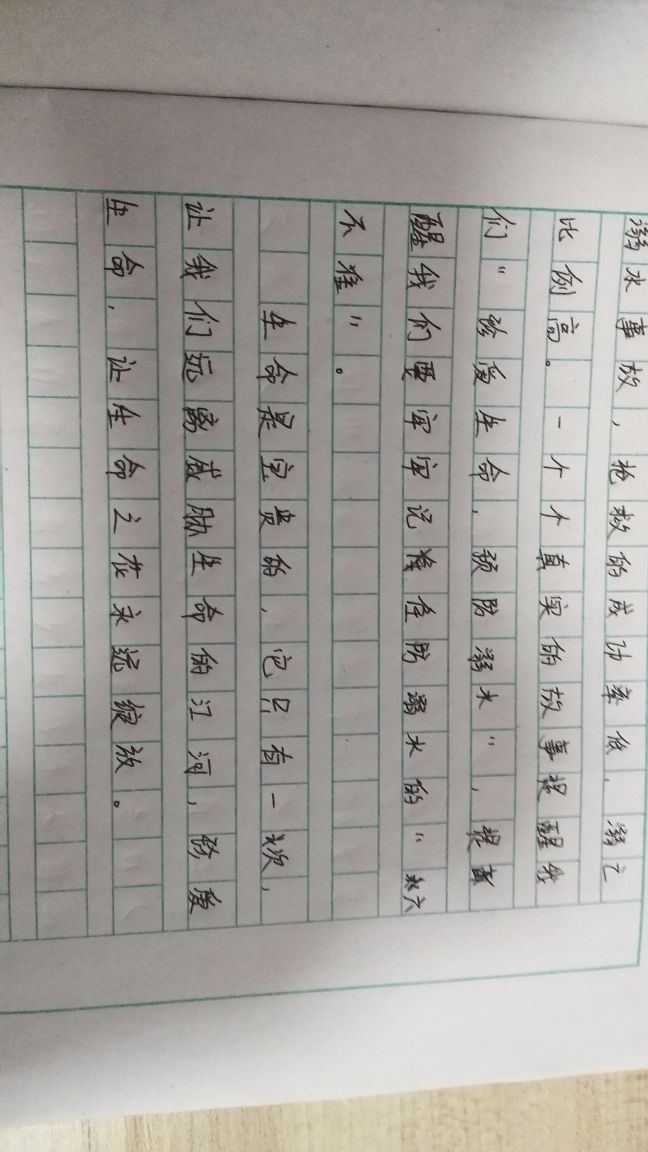 溺水事故，抢救的成功率低，溺亡
比例高。一个个真实的故事提醒我
们“珍爱生命，预防溺水”，提
醒我们要牢牢记住防溺水的“六
不准”。
生命是宝贵的，它只有一次，
让我们远离威胁生命的江河，珍爱
生命，让生命之花永远绽放。